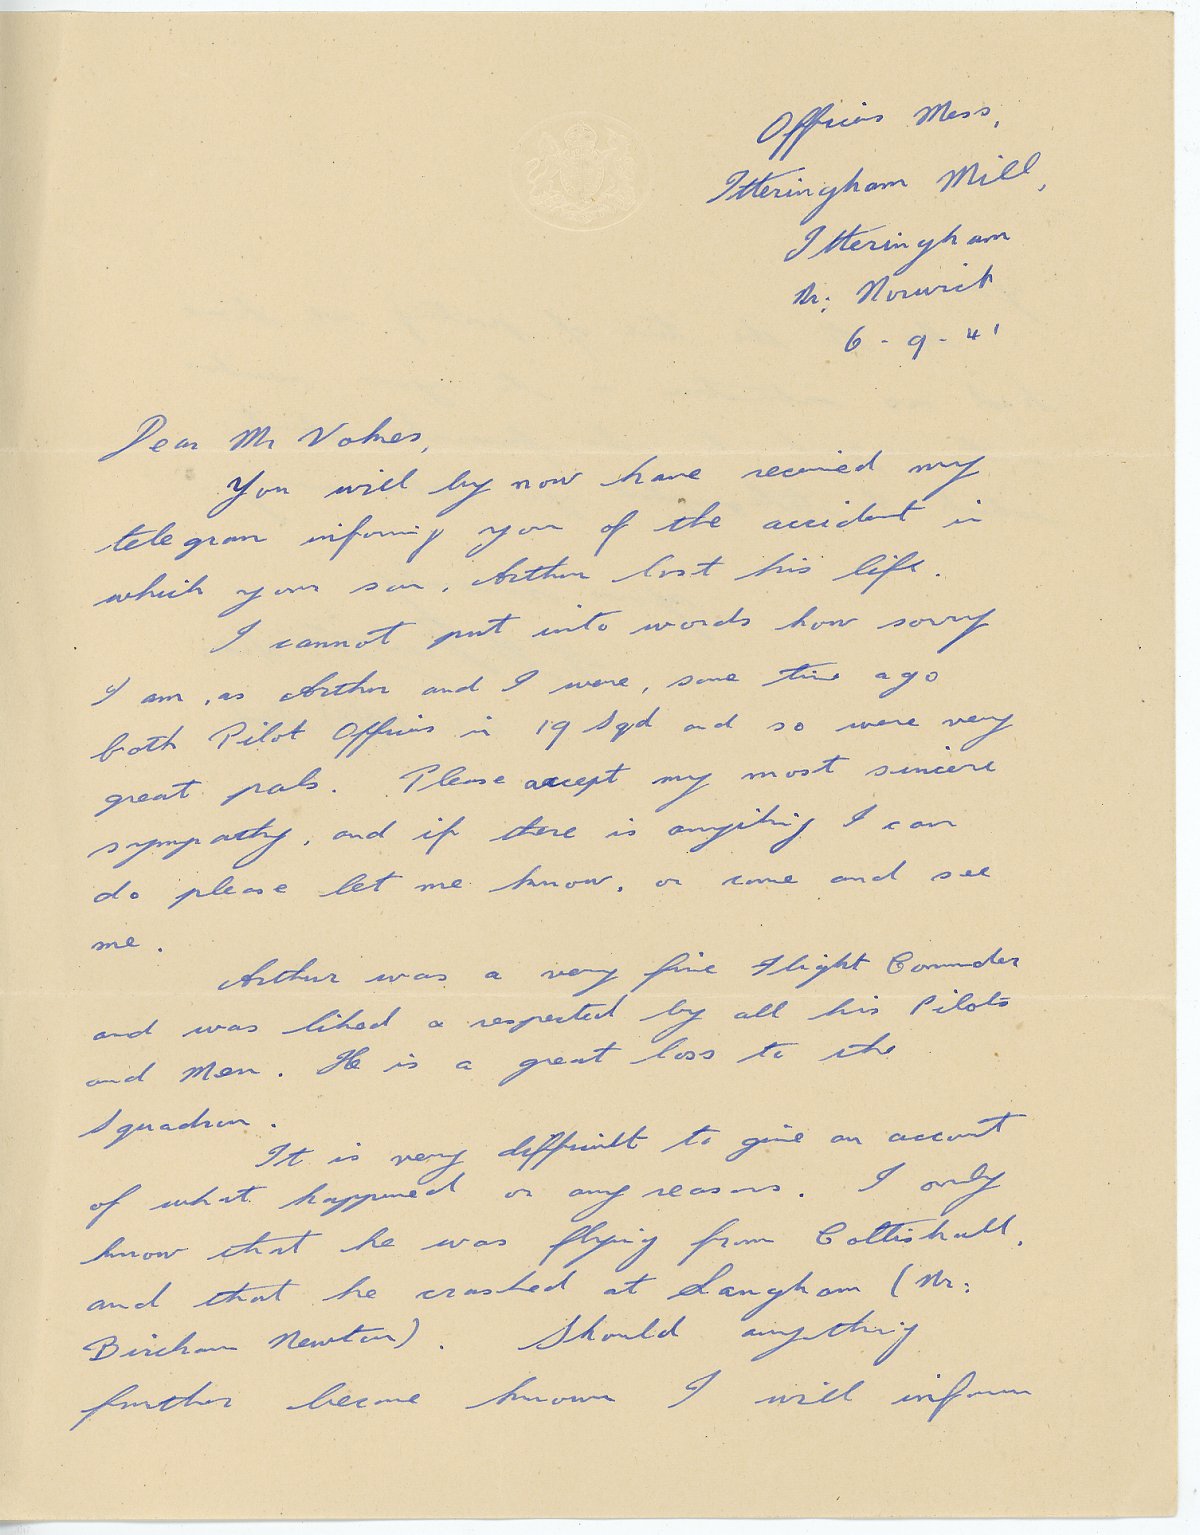 Officers Mess,
Itteringham Mill,
Itteringham
Nr: Norwich
6 - 9 - 41
Dear Mr Vokes,
You will by now have received my
telegram informing you of the accident in
which your son, Arthur lost his life.
I cannot put into words how sorry
I am, as Arthur and I were, some time ago
both Pilot Officers in 19 Sqd and so were very
great pals. Please accept my most sincere
sympathy, and if there is anything I can
do please let me know, or come and see
me.
Arthur was a very fine Flight Commder
and was liked a respected by all his Pilots
and Men. He is a great loss to the
Squadron.
It is very difficult to give an account
of what happened or any reasons. I only
know that he was flying from Coltishall,
and that he crashed at Langham (Nr:
Bircham Newton). Should anything
further become known I will inform